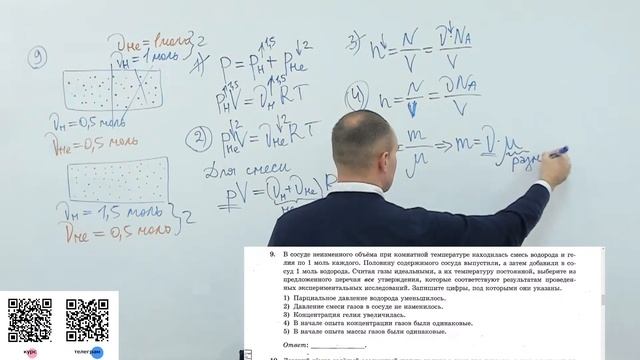 9
ν_He = 1 моль } 2
ν_H = 1 моль
ν_H = 0,5 моль
ν_He = 0,5 моль
ν_H = 1,5 моль } 2
ν_He = 0,5 моль
1) p = p_H ↑1,5 + p_He ↓2
p_H ↑1,5 V = ν_H ↑1,5 RT
2) p_He ↓2 V = ν_He ↓2 RT
Для смеси
pV = (ν_H + ν_He) R
3) n↓ = N/V = ν↓N_A/V
4) n = N/V = νN_A/V
= m/μ ⇒ m = ν · μ
разн
9. В сосуде неизменного объёма при комнатной температуре находилась смесь водорода и ге-
лия по 1 моль каждого. Половину содержимого сосуда выпустили, а затем добавили в со-
суд 1 моль водорода. Считая газы идеальными, а их температуру постоянной, выберите из
предложенного перечня все утверждения, которые соответствуют результатам проведен-
ных экспериментальных исследований. Запишите цифры, под которыми они указаны.
1) Парциальное давление водорода уменьшилось.
2) Давление смеси газов в сосуде не изменилось.
3) Концентрация гелия увеличилась.
4) В начале опыта концентрации газов были одинаковые.
5) В начале опыта массы газов были одинаковые.
Ответ:
курс
телеграм